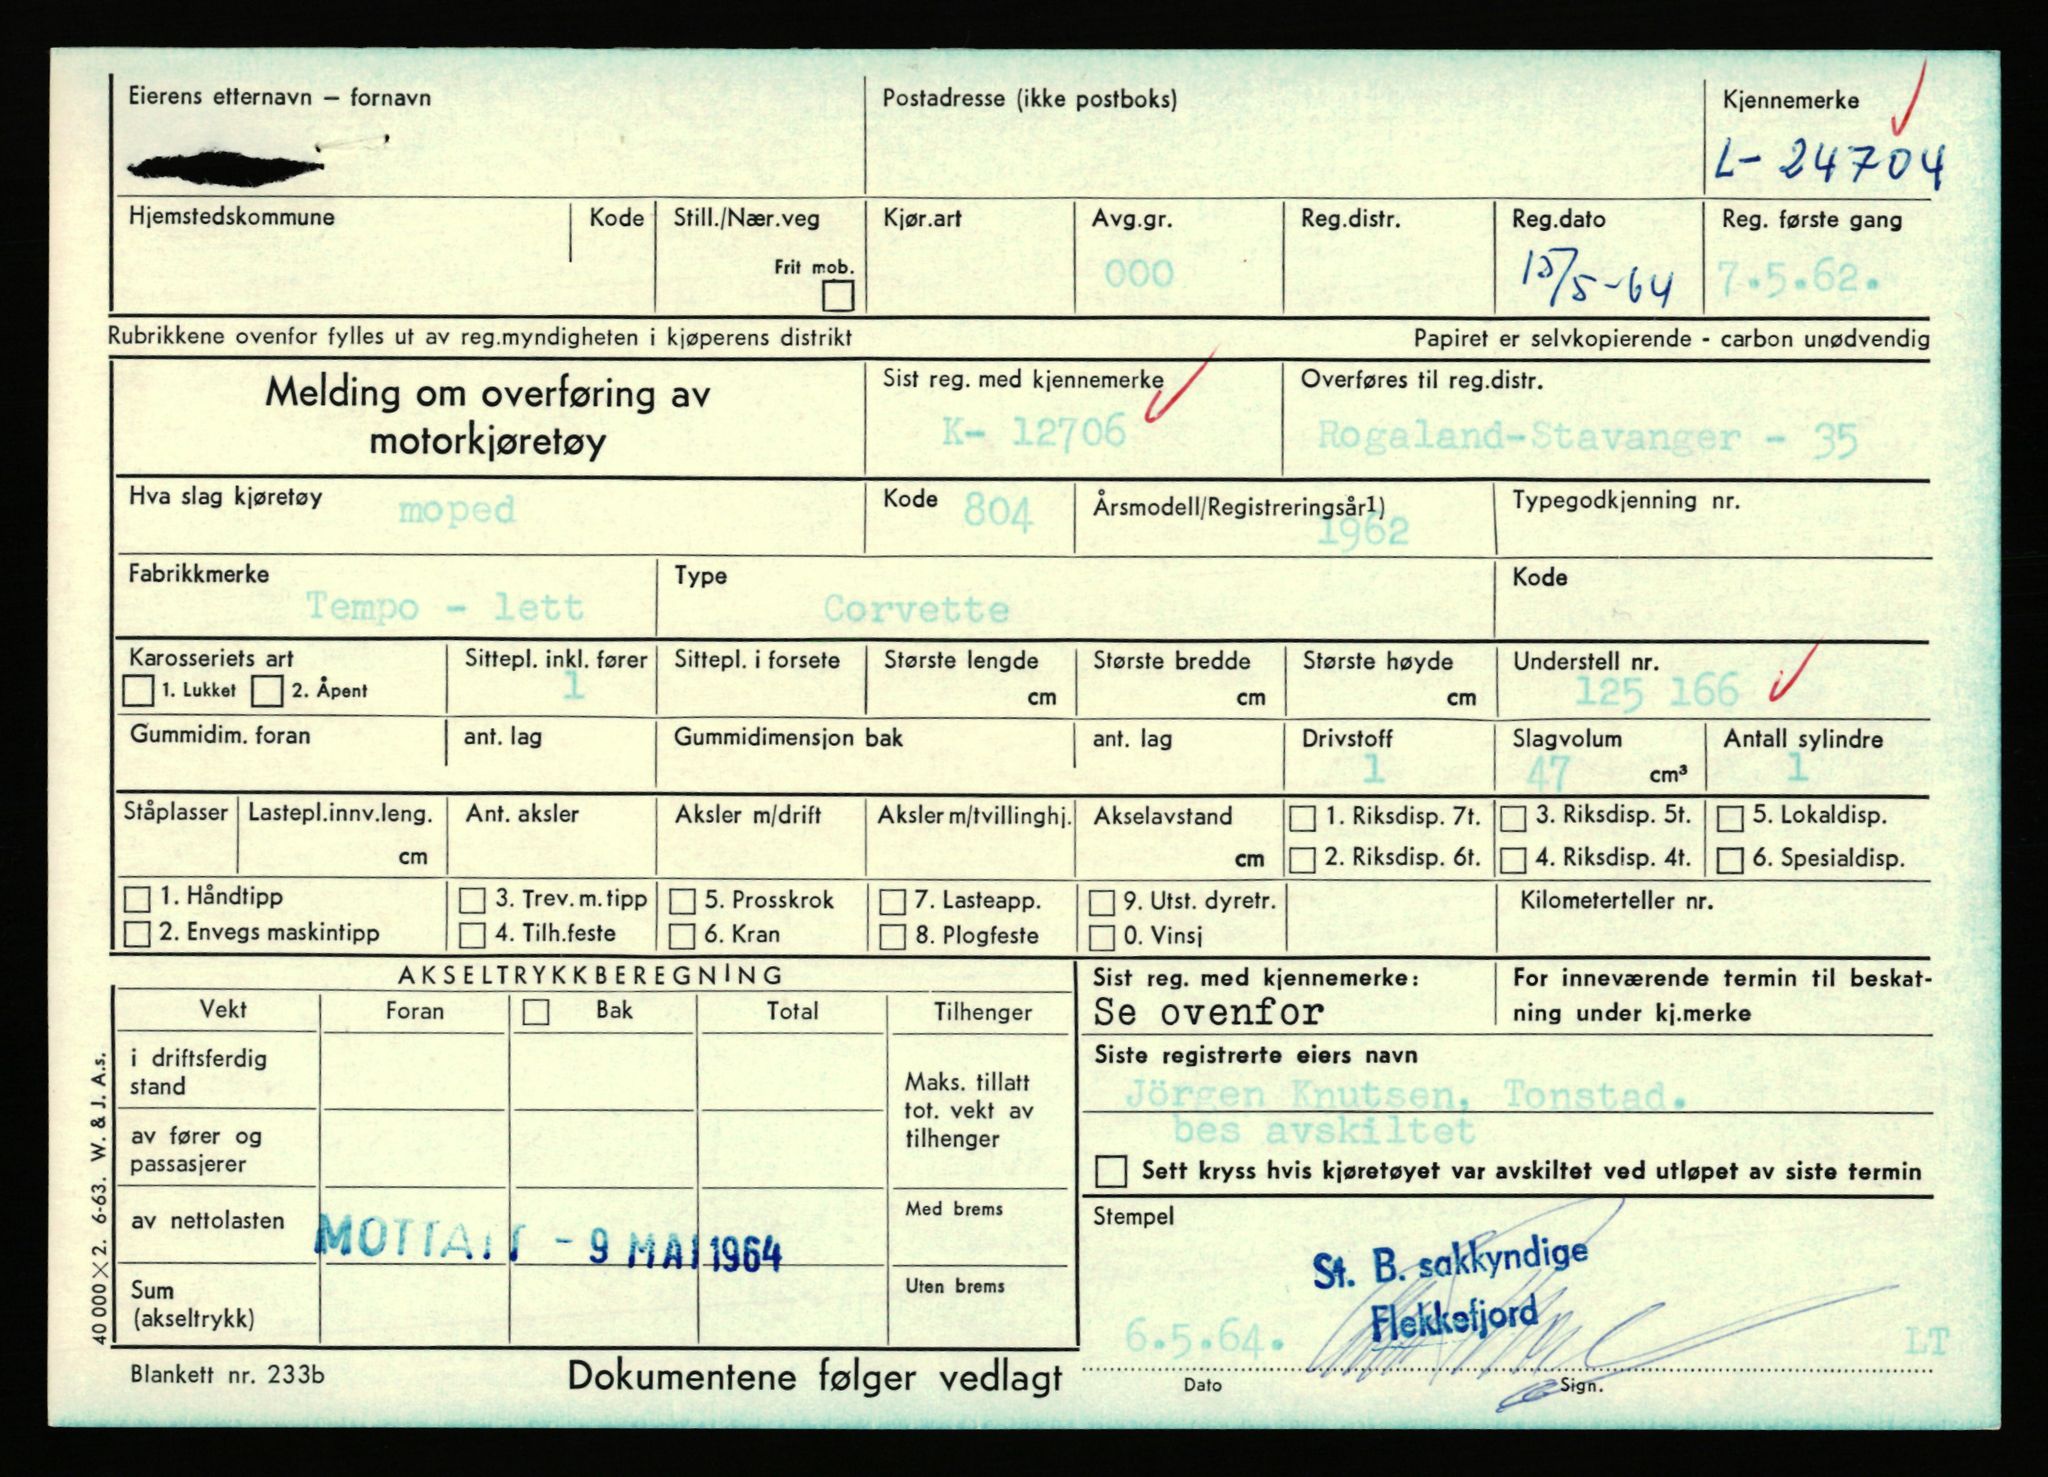 Eierens etternavn – fornavn
Postadresse (ikke postboks)
Kjennemerke
L- 24704
Hjemstedskommune
Kode
Still./Nær.veg
Frit mob.
Kjør.art
Avg.gr.
000
Reg.distr.
Reg.dato
15/5-64
Reg. første gang
7.5.62.
Rubrikkene ovenfor fylles ut av reg.myndigheten i kjøperens distrikt
Papiret er selvkopierende - carbon unødvendig
Melding om overføring av
motorkjøretøy
Sist reg. med kjennemerke
K- 12706
Overføres til reg.distr.
Rogaland-Stavanger - 35
Hva slag kjøretøy
moped
Kode
804
Årsmodell/Registreringsår1)
1962
Typegodkjenning nr.
Fabrikkmerke
Tempo - lett
Type
Corvette
Kode
Karosseriets art
1. Lukket 2. Åpent
Sittepl. inkl. fører
1
Sittepl. i forsete
Største lengde
cm
Største bredde
cm
Største høyde
cm
Understell nr.
125 166
Gummidim. foran
ant. lag
Gummidimensjon bak
ant. lag
Drivstoff
1
Slagvolum
47 cm³
Antall sylindre
1
Ståplasser
Lastepl.innv.leng.
cm
Ant. aksler
Aksler m/drift
Aksler m/tvillinghj.
Akselavstand
cm
1. Riksdisp. 7t.
2. Riksdisp. 6t.
3. Riksdisp. 5t.
4. Riksdisp. 4t.
5. Lokaldisp.
6. Spesialdisp.
1. Håndtipp
2. Envegs maskintipp
3. Trev. m. tipp
4. Tilh.feste
5. Prosskrok
6. Kran
7. Lasteapp.
8. Plogfeste
9. Utst. dyretr.
0. Vinsj
Kilometerteller nr.
AKSELTRYKKBEREGNING
Vekt
Foran
Bak
Total
Tilhenger
i driftsferdig
stand
av fører og
passasjerer
av nettolasten
Sum
(akseltrykk)
Maks. tillatt
tot. vekt av
tilhenger
Med brems
Uten brems
MOTTATT - 9 MAI 1964
Sist reg. med kjennemerke:
Se ovenfor
For inneværende termin til beskat-
ning under kj.merke
Siste registrerte eiers navn
Jörgen Knutsen, Tonstad.
bes avskiltet
Sett kryss hvis kjøretøyet var avskiltet ved utløpet av siste termin
Stempel
St. B. sakkyndige
Flekkefjord
6.5.64.
LT
Dato
Sign.
40 000 × 2. 6-63. W. & J. A.s.
Blankett nr. 233b
Dokumentene følger vedlagt